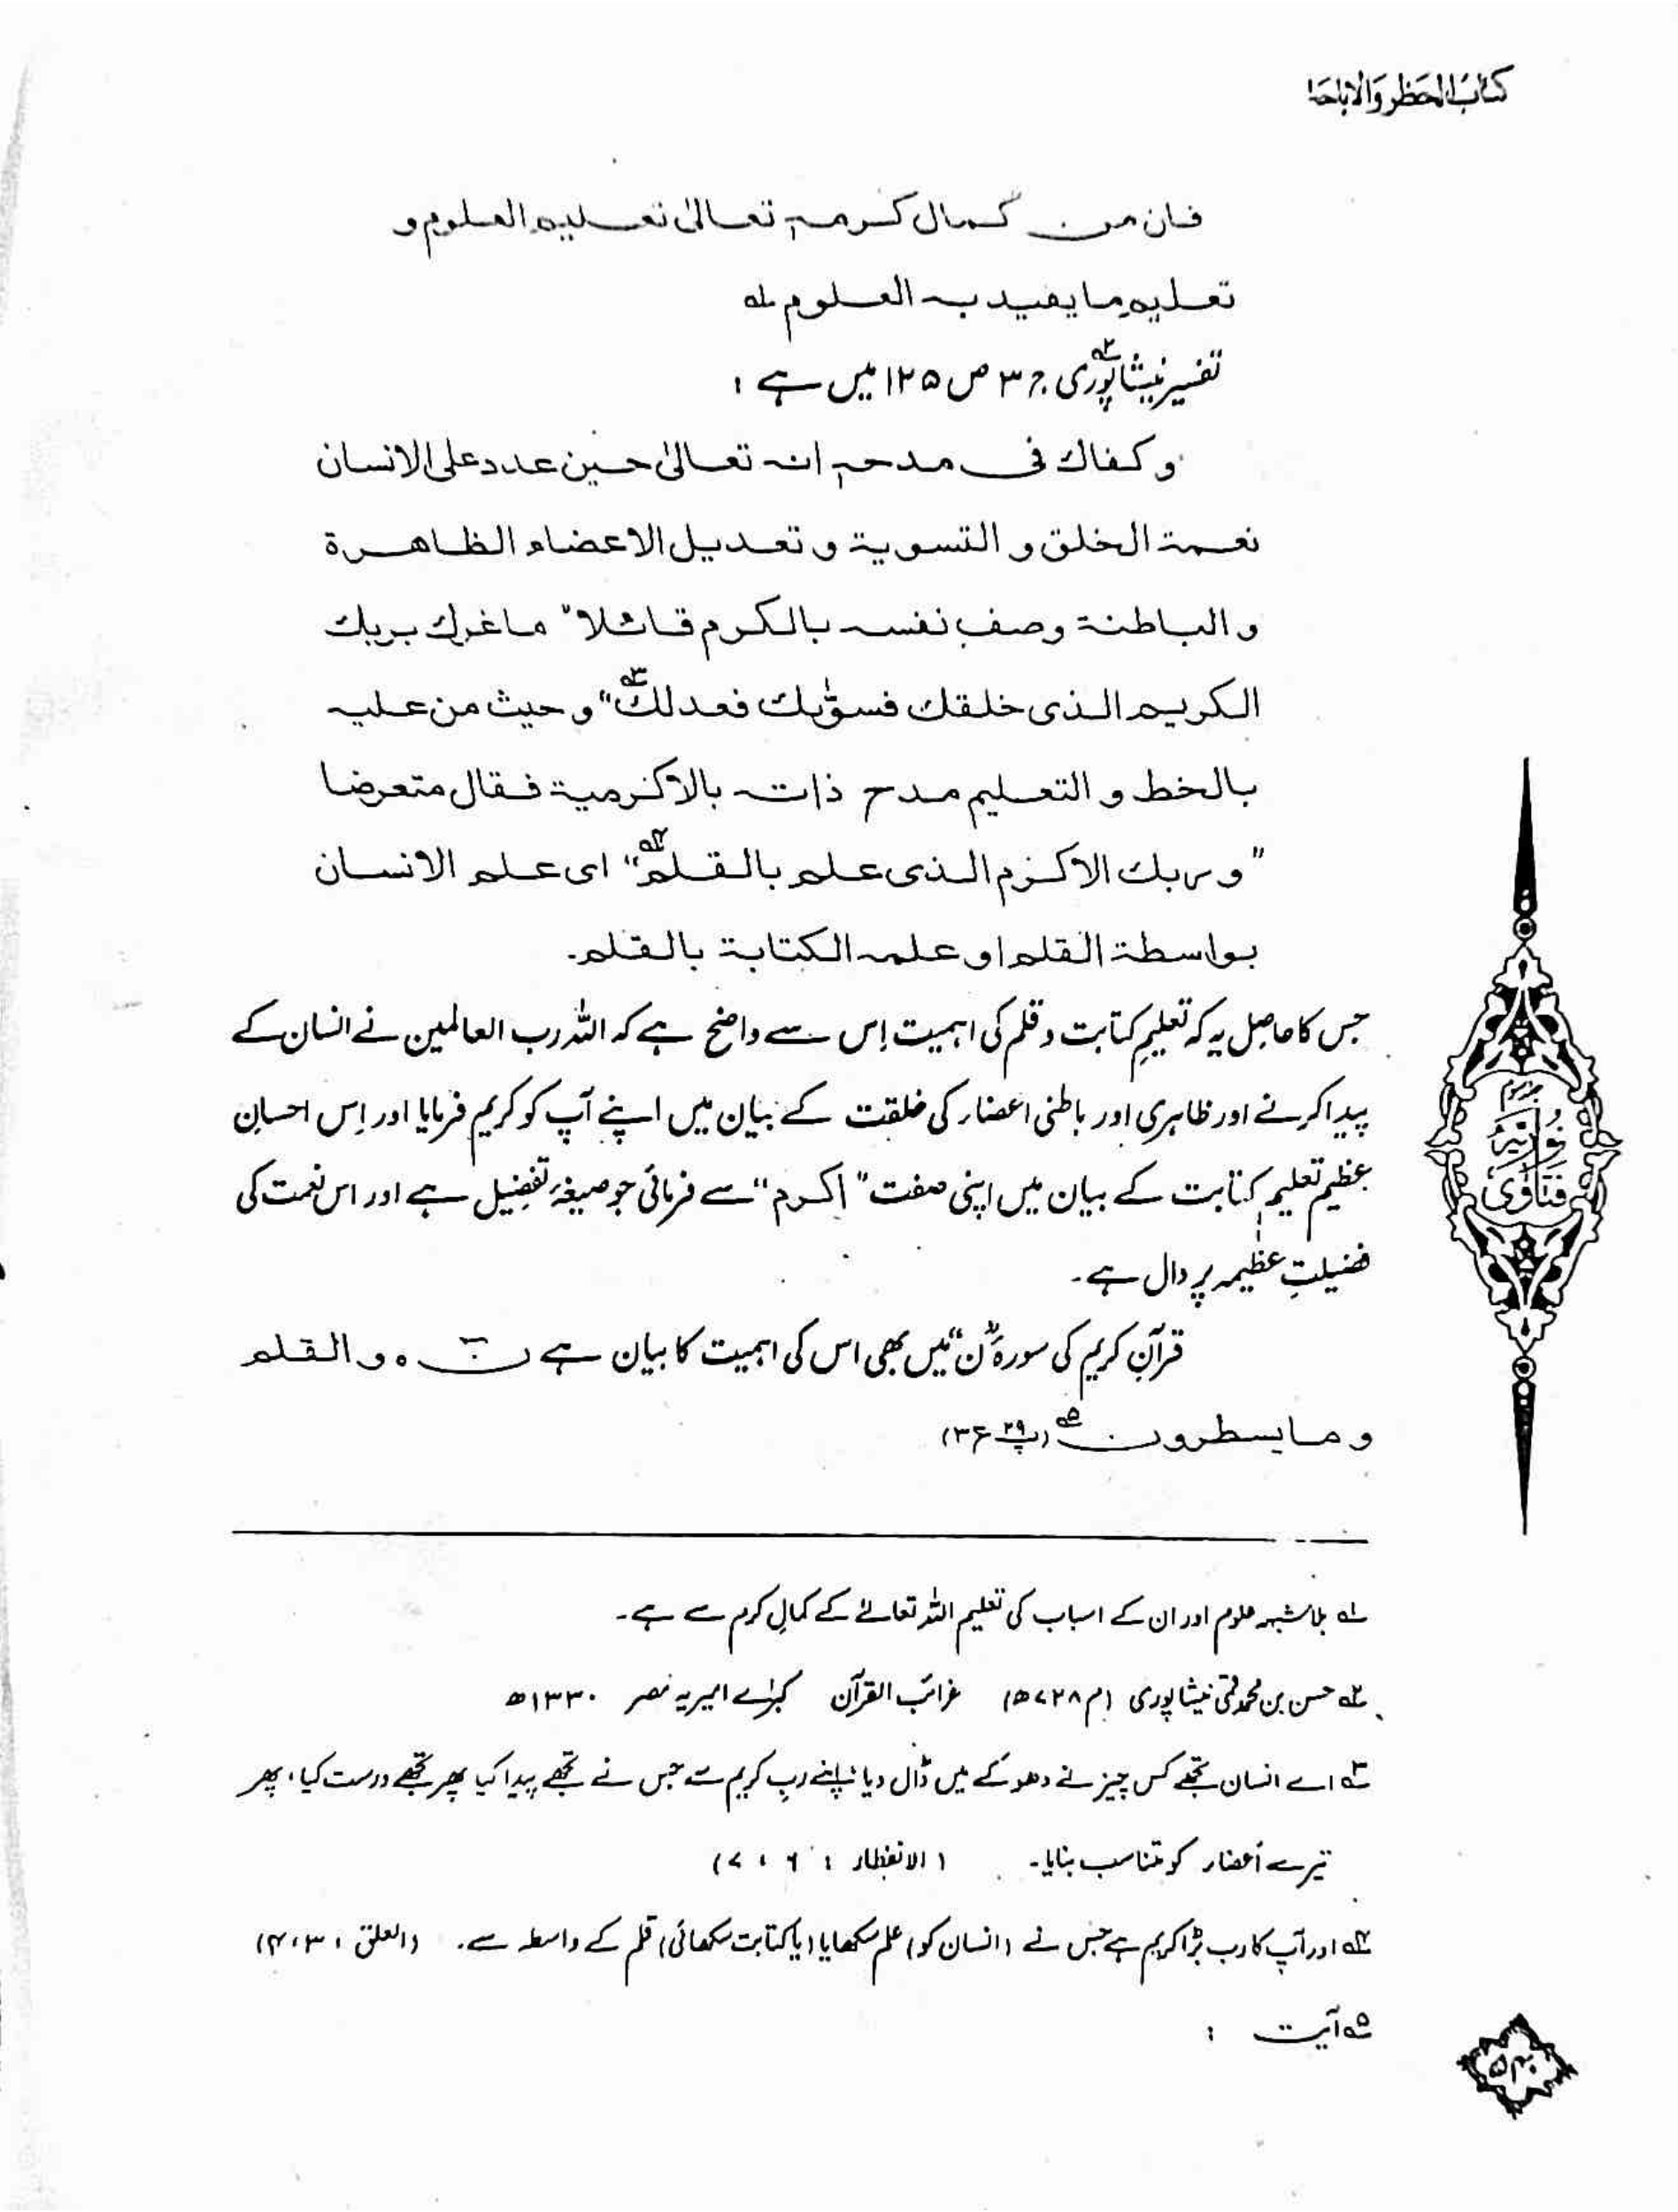 كتاب الحظر والاباحة
فان من كمال كرمه تعالىٰ تعليم العلوم و
تعليم ما يفيد به العلوم ؎۱
تفسیر نیشاپوری؎۲ ج ۳ ص ۱۲۵ میں ہے :
و كفاك فى مدحه انه تعالىٰ حين عدد على الانسان
نعمة الخلق و التسوية و تعديل الاعضاء الظاهرة
و الباطنة وصف نفسه بالكرم قائلا "ما غرك بربك
الكريم الذى خلقك فسوّٰىك فعدلك؎۳" و حيث من عليه
بالخط و التعليم مدح ذاته بالاكرمية فقال متعرضا
"و ربك الاكرم الذى علم بالقلم؎۴" اى علم الانسان
بواسطة القلم او علمه الكتابة بالقلم۔
جس کا حاصل یہ کہ تعلیمِ کتابت و قلم کی اہمیت اِس سے واضح ہے کہ اللہ رب العالمین نے انسان کے
پیدا کرنے اور ظاہری اور باطنی اعضار کی خلقت کے بیان میں اپنے آپ کو کریم فرمایا اور اِس احسانِ
عظیم تعلیم کتابت کے بیان میں اپنی صفت "اکرم" سے فرمائی جو صیغۂ تفضیل ہے اور اس نعمت کی
فضیلتِ عظیمہ پر دال ہے۔
قرآنِ کریم کی سورۂ "ن" میں بھی اس کی اہمیت کا بیان ہے نٓ ہ و القلم
و ما يسطرون ؎۵ (پ ۲۹ ع ۳)
فتاوىٰ نوريه
؎۱ بلاشبہہ علوم اور ان کے اسباب کی تعلیم اللہ تعالےٰ کے کمالِ کرم سے ہے۔
؎۲ حسن بن محمد قمی نیشاپوری (م ۷۲۸ھ) غرائب القرآن کبرٰے امیریہ مصر ۱۳۳۰ھ
؎۳ اے انسان تجھے کس چیز نے دھوکے میں ڈال دیا اپنے ربِ کریم سے جس نے تجھے پیدا کیا پھر تجھے درست کیا، پھر
تیرے اعضار کو متناسب بنایا۔ (الانفطار : ۶ ، ۷)
؎۴ اور آپ کا رب بڑا کریم ہے جس نے (انسان کو) علم سکھایا (یا کتابت سکھائی) قلم کے واسطہ سے۔ (العلق : ۳ ، ۴)
؎۵ آیت :
۵۴۰